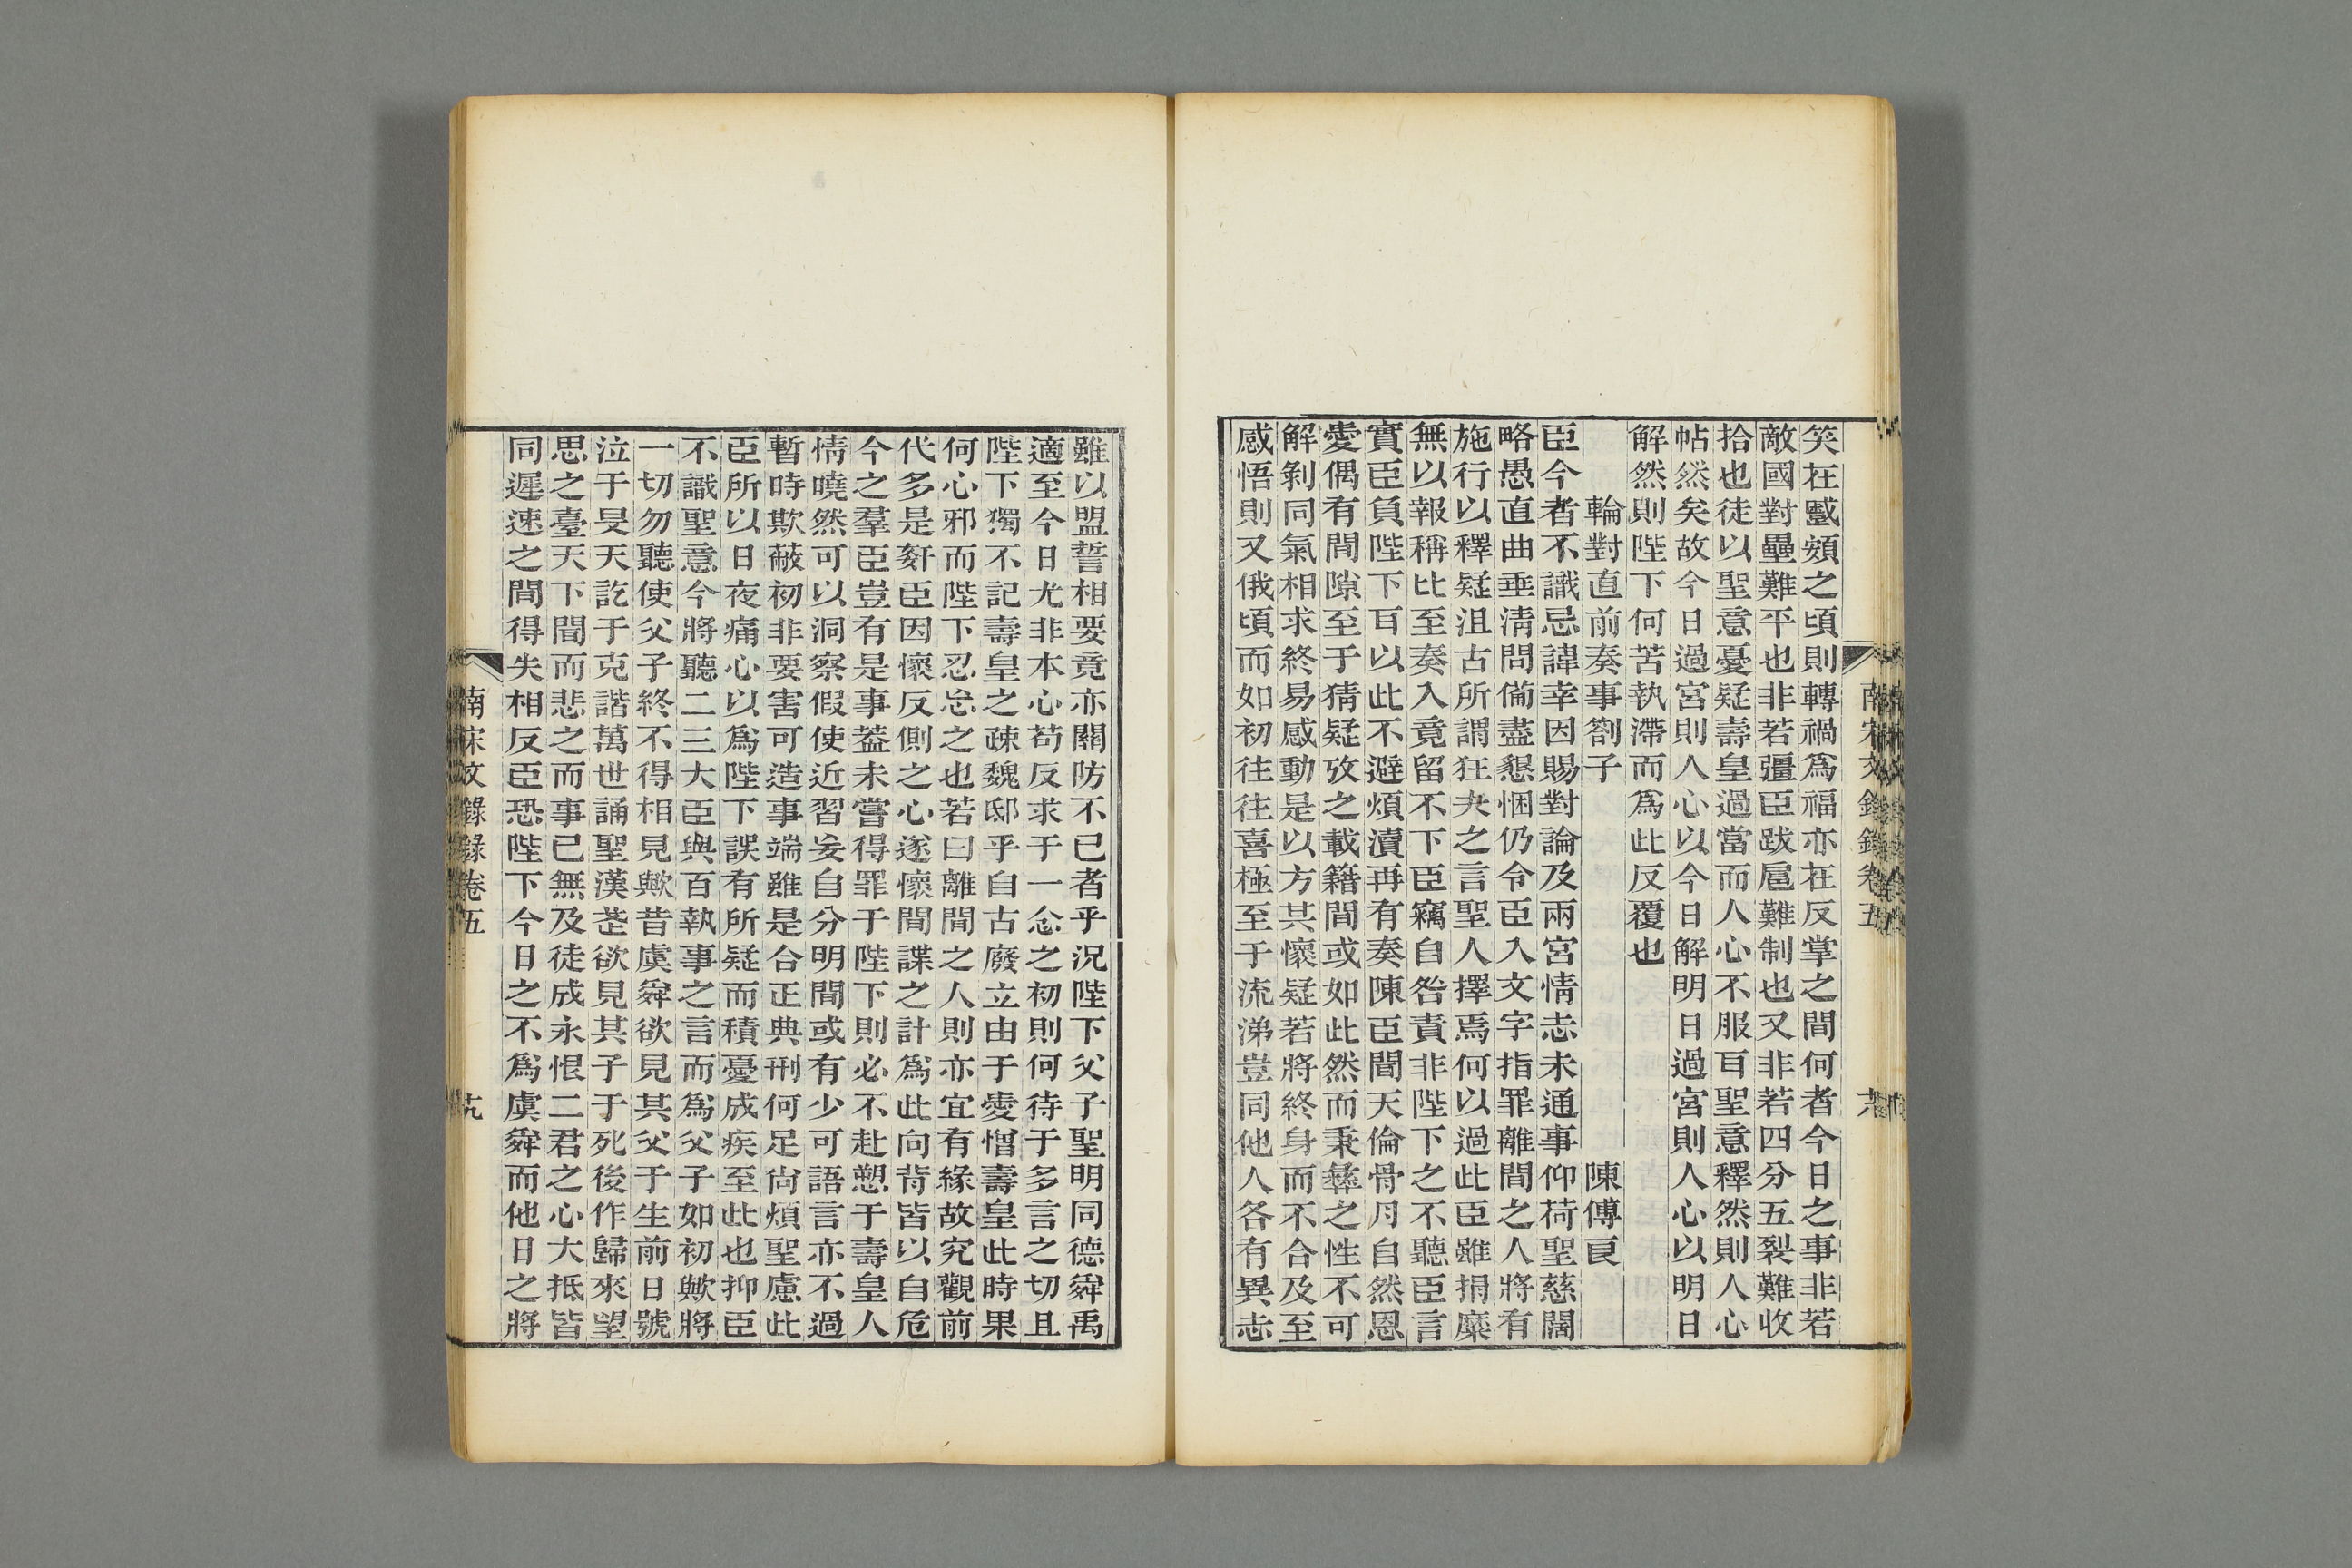 笑在蹙頞之頃則轉禍爲福亦在反掌之間何者今日之事非若
敵國對壘難平也非若彊臣跋扈難制也又非若四分五裂難收
拾也徒以聖意憂疑壽皇過當而人心不服耳聖意釋然則人心
帖然矣故今日過宮則人心以今日解明日過宮則人心以明日
解然則陛下何苦執滯而爲此反覆也
輪對直前奏事劄子 陳傅良
臣今者不識忌諱幸因賜對論及兩宮情志未通事仰荷聖慈闊
略愚直曲垂淸問備盡懇悃仍令臣入文字指罪離間之人將有
施行以釋疑沮古所謂狂夫之言聖人擇焉何以過此臣雖捐糜
無以報稱比至奏入竟留不下臣竊自咎責非陛下之不聽臣言
實臣負陛下耳以此不避煩瀆再有奏陳臣聞天倫骨月自然恩
愛偶有間隙至于猜疑攷之載籍間或如此然而秉彝之性不可
解剝同氣相求終易感動是以方其懷疑若將終身而不合及至
感悟則又俄頃而如初往往喜極至于流涕豈同他人各有異志
南宋文錄錄卷五 六
雖以盟誓相要竟亦關防不已者乎況陛下父子聖明同德舜禹
適至今日尤非本心苟反求于一念之初則何待于多言之切且
陛下獨不記壽皇之疎魏邸乎自古廢立由于愛憎壽皇此時果
何心邪而陛下忍忘之也若曰離間之人則亦宜有緣故究觀前
代多是奸臣因懷反側之心遂懷間諜之計爲此向背皆以自危
今之羣臣豈有是事葢未嘗得罪于陛下則必不赴愬于壽皇人
情曉然可以洞察假使近習妄自分明間或有少可語言亦不過
暫時欺蔽初非要害可造事端雖是合正典刑何足尙煩聖慮此
臣所以日夜痛心以爲陛下誤有所疑而積憂成疾至此也抑臣
不識聖意今將聽二三大臣與百執事之言而爲父子如初歟將
一切勿聽使父子終不得相見歟昔虞舜欲見其父于生前日號
泣于旻天訖于克諧萬世誦聖漢武欲見其子于死後作歸來望
思之臺天下聞而悲之而事已無及徒成永恨二君之心大抵皆
同遲速之間得失相反臣恐陛下今日之不爲虞舜而他日之將
南宋文錄錄卷五 九